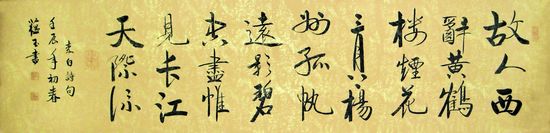 故人西
辭黄鶴
樓煙花
三月下揚
州孤帆
遠影碧
空盡惟
見長江
天際流
李白詩句
壬辰年初春
玉書